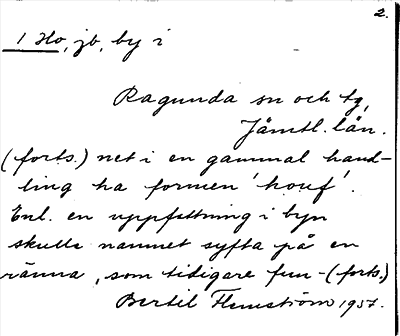 2.
1 Ho, jb, by i
Ragunda sn och tg,
Jämtl. län.
(forts.) net i en gammal hand-
ling ha formen 'houf'.
Enl. en uppfattning i byn
skulle namnet syfta på en
ränna, som tidigare fun- (forts.)
Bertil Flemström 1957.